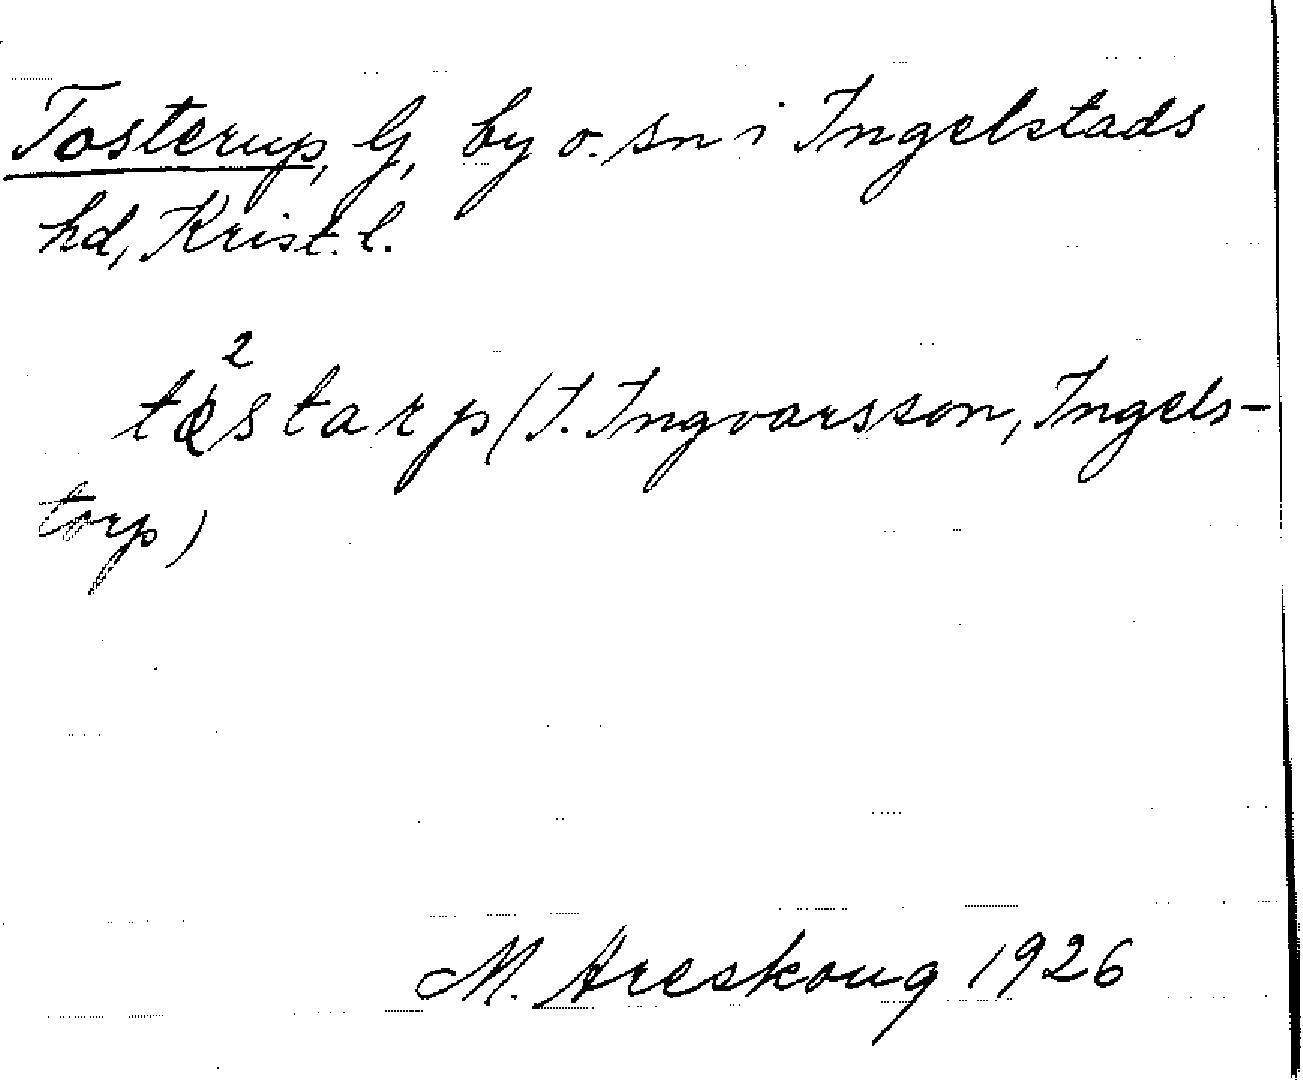 Tosterup, G, by o. sn i Ingelstads
hd, Krist. l.
2
(J. Ingvarsson, Ingels-
torp)
M. Areskoug 1926